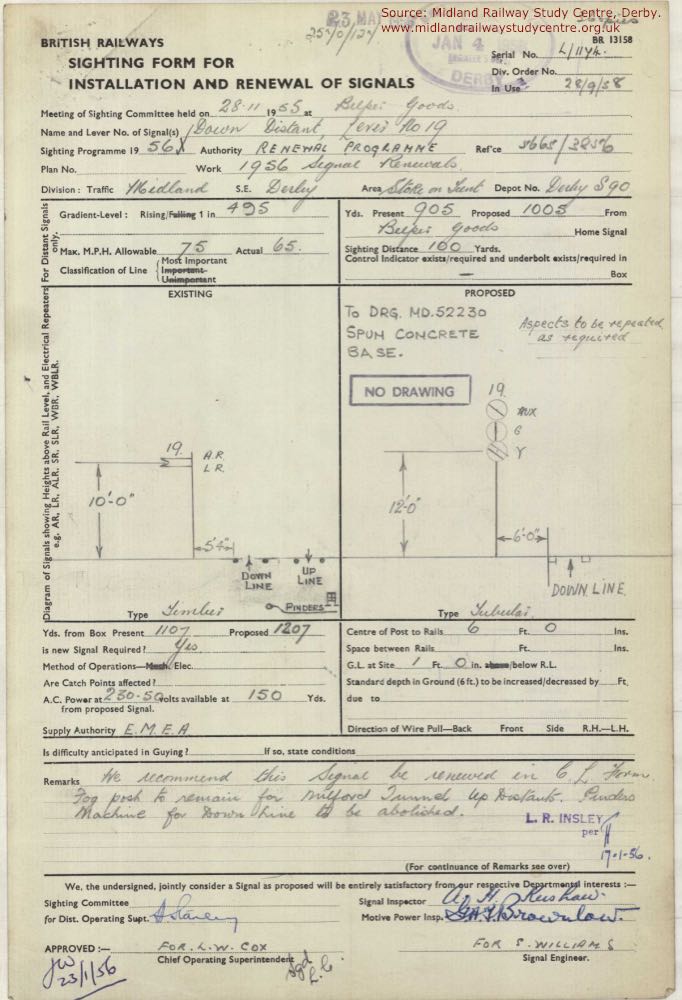 Source: Midland Railway Study Centre, Derby.
www.midlandrailwaystudycentre.org.uk
23 MAY
JAN 4
DERBY
BRITISH RAILWAYS
BR 13158
SIGHTING FORM FOR
INSTALLATION AND RENEWAL OF SIGNALS
Serial No. L/1174.
Div. Order No.
In Use 28/9/58
Meeting of Sighting Committee held on 28-11 1955 at Belper Goods.
Name and Lever No. of Signal(s) Down Distant, Lever No 19
Sighting Programme 19 56 Authority RENEWAL PROGRAMME Ref'ce
Plan No. Work 1956 Signal Renewals.
Division: Traffic Midland S.E. Derby Area Stoke on Trent Depot No. Derby S90
Diagram of Signals showing Heights above Rail Level, and Electrical Repeaters
e.g. AR, LR, ALR. SR. SLR, WBR. WBLR.
For Distant Signals only.
Gradient-Level: Rising/Falling 1 in 495
Max. M.P.H. Allowable 75 Actual 65.
Classification of Line
Most Important
Important
Unimportant
Yds. Present 905 Proposed 1005 From
Belper Goods Home Signal
Sighting Distance 100 Yards.
Control Indicator exists/required and underbolt exists/required in
— Box
EXISTING
19.
A.R.
L.R.
10'-0"
5'4"
DOWN LINE
UP LINE
PINDERS
Type Timber
PROPOSED
To DRG. MD.52230
SPUN CONCRETE
BASE.
Aspects to be repeated
as required
NO DRAWING
19.
AUX
G
Y
12'-0"
6'-0"
DOWN LINE.
Type Tubular.
Yds. from Box Present 1107 Proposed 1207
is new Signal Required? Yes
Method of Operations—Mech. Elec.
Are Catch Points affected?
A.C. Power at 230-50 volts available at 150 Yds.
from proposed Signal.
Supply Authority E.M.E.A.
Centre of Post to Rails 6 Ft. 0 Ins.
Space between Rails Ft. Ins.
G.L. at Site 1 Ft. 0 in. above/below R.L.
Standard depth in Ground (6 ft.) to be increased/decreased by Ft.
due to
Direction of Wire Pull—Back Front Side R.H.—L.H.
Is difficulty anticipated in Guying? If so, state conditions
Remarks We recommend this Signal be renewed in C.L. Form.
Fog post to remain for Milford Tunnel Up Distants. Pinders
Machine for Down Line to be abolished.
L. R. INSLEY
per
17-1-56.
(For continuance of Remarks see over)
We, the undersigned, jointly consider a Signal as proposed will be entirely satisfactory from our respective Departmental interests:—
Sighting Committee
for Dist. Operating Supt.
Signal Inspector A. H. Kershaw.
Motive Power Insp. Brownlow.
APPROVED:— FOR. L.W. COX
Chief Operating Superintendent
JW
23/1/56
FOR S. WILLIAMS
Signal Engineer.